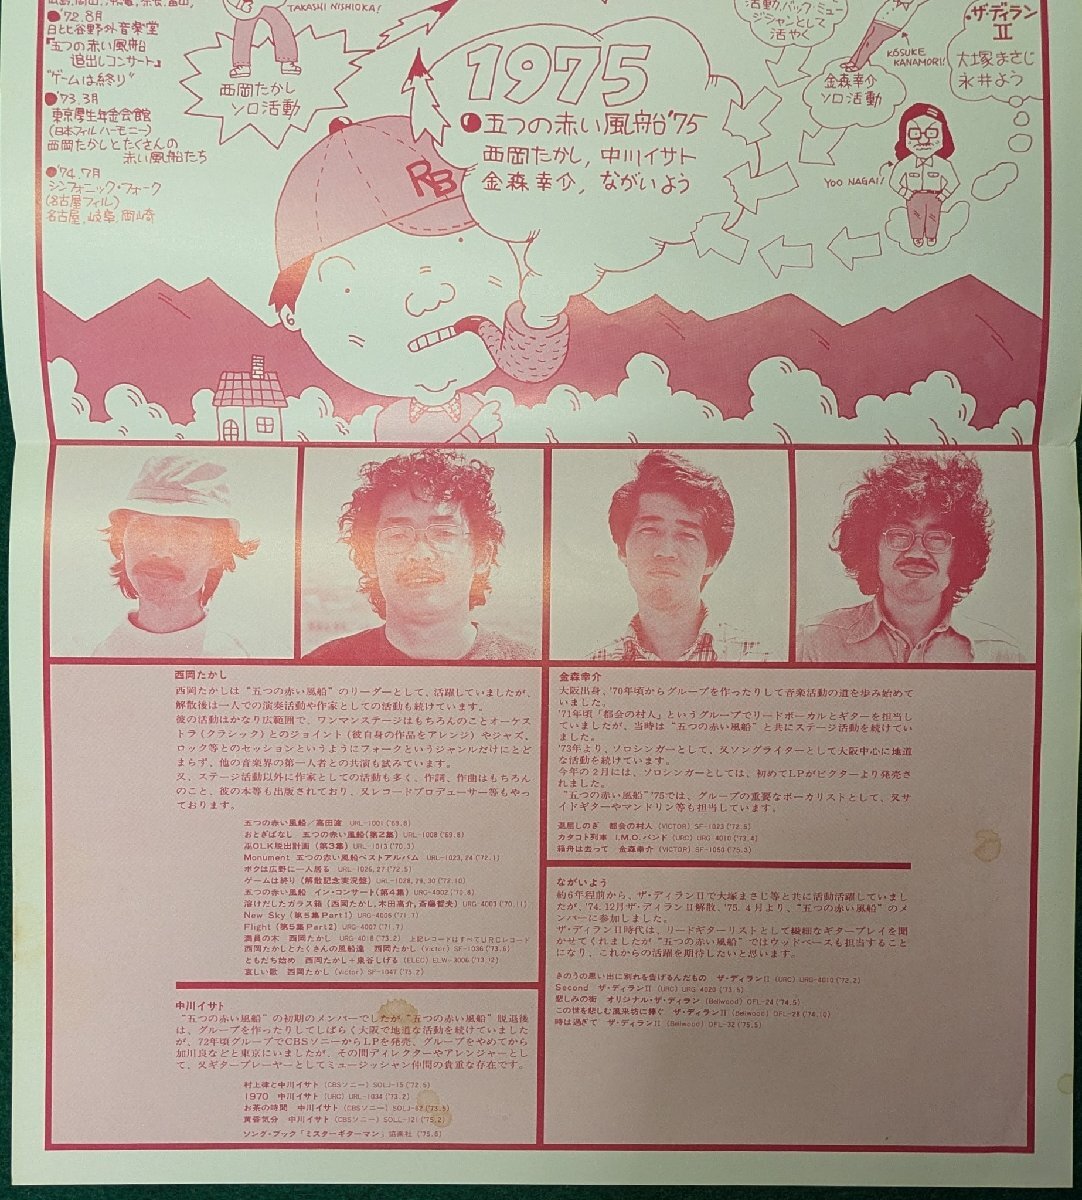 広島,岡山,
●'72.8月
日と比谷野外音楽堂
『五つの赤い風船
追出しコンサート』
"ゲームは終り"
●'73.3月
東京厚生年金会館
(日本フィルハーモニー)
西岡たかしとたくさんの
赤い風船たち
●'74.7月
シンフォニック・フォーク
(名古屋フィル)
名古屋,岐阜,岡崎
TAKASHI NISHIOKA!
西岡たかし
ソロ活動
RB
1975
●五つの赤い風船'75
西岡たかし,中川イサト
金森幸介,ながいよう
活動,バック・ミュー
ジシャンとして
活やく
KŌSUKE
KANAMORI!
金森幸介
ソロ活動
ザ・ディラン
II
大塚まさじ
永井よう
YOO NAGAI!
西岡たかし
西岡たかしは"五つの赤い風船"のリーダーとして、活躍していましたが、
解散後は一人での演奏活動や作家としての活動も続けています。
彼の活動はかなり広範囲で、ワンマンステージはもちろんのことオーケス
トラ(クラシック)とのジョイント(彼自身の作品をアレンジ)やジャズ、
ロック等とのセッションというようにフォークというジャンルだけにとど
まらず、他の音楽界の第一人者との共演も試みています。
又、ステージ活動以外に作家としての活動も多く、作詞、作曲はもちろん
のこと、彼の本等も出版されており、又レコードプロデューサー等もやっ
ております。
五つの赤い風船/高田渡 URL-1001('69.8)
おとぎばなし 五つの赤い風船(第2集) URL-1008('69.8)
巫OLK脱出計画(第3集) URL-1013('70.3)
Monument 五つの赤い風船ベストアルバム URL-1023,24('72.1)
ボクは広野に一人居る URL-1026,27('72.5)
ゲームは終り(解散記念実況盤) URL-1028,29,30('72.10)
五つの赤い風船 イン・コンサート(第4集) URG-4002('70.8)
溶けだしたガラス箱(西岡たかし,木田高介,斎藤哲夫) URG-4001('70.11)
New Sky(第5集Part1) URG-4006('71.7)
Flight(第5集Part2) URG-4007('71.7)
満員の木 西岡たかし URG-4018('73.2) 上記レコードはすべてURCレコード
西岡たかしとたくさんの風船達 西岡たかし(Victor) SF-1036('73.6)
ともだち始め 西岡たかし+泉谷しげる(ELEC) ELW-3006('73.12)
哀しい歌 西岡たかし(Victor) SF-1047('75.2)
中川イサト
"五つの赤い風船"の初期のメンバーでしたが"五つの赤い風船"脱退後
は、グループを作ったりしてしばらく大阪で地道な活動を続けていました
が、72年頃グループでCBSソニーからLPを発売、グループをやめてから
加川良などと東京にいましたが、その間ディレクターやアレンジャーとし
て、又ギタープレーヤーとしてミュージッシャン仲間の貴重な存在です。
村上律と中川イサト(CBSソニー) SOLJ-15('72.5)
1970 中川イサト(URC) URL-1034('73.2)
お茶の時間 中川イサト(CBSソニー) SOLJ-82('73.5)
黄昏気分 中川イサト(CBSソニー) SOLL-121('75.2)
ソング・ブック「ミスターギターマン」協楽社('75.6)
金森幸介
大阪出身、'70年頃からグループを作ったりして音楽活動の道を歩み始めて
いました。
'71年頃「都会の村人」というグループでリードボーカルとギターを担当し
ていましたが、当時は"五つの赤い風船"と共にステージ活動を続けてい
ました。
'73年より、ソロシンガーとして、又ソングライターとして大阪中心に地道
な活動を続けています。
今年の2月には、ソロシンガーとしては、初めてLPがビクターより発売さ
れました。
"五つの赤い風船"'75では、グループの重要なボーカリストとして、又サ
イドギターやマンドリン等も担当しています。
退屈しのぎ 都会の村人(VICTOR) SF-1023('72.5)
カタコト列車 I.M.O.バンド(URC) URG-4010('73.4)
箱舟は出って 金森幸介(VICTOR) SF-1050('75.3)
ながいよう
約6年程前から、ザ・ディランIIで大塚まさじ等と共に活動活躍していまし
たが、'74.12月ザ・ディランII解散、'75.4月より、"五つの赤い風船"のメ
ンバーに参加しました。
ザ・ディランII時代は、リードギターリストとして繊細なギタープレイを聞
かせてくれましたが"五つの赤い風船"ではウッドベースも担当すること
になり、これからの活躍を期待したいと思います。
きのうの思い出に別れを告げるんだもの ザ・ディランII(URC) URG-4010('72.2)
Second ザ・ディランII(URC) URG-4020('73.5)
悲しみの街 オリジナル・ザ・ディラン(Bellwood) OFL-24('74.5)
この世を悲しむ風来坊に捧ぐ ザ・ディランII(Bellwood) OFL-28('74.10)
時は過ぎて ザ・ディランII(Bellwood) OFL-32('75.5)